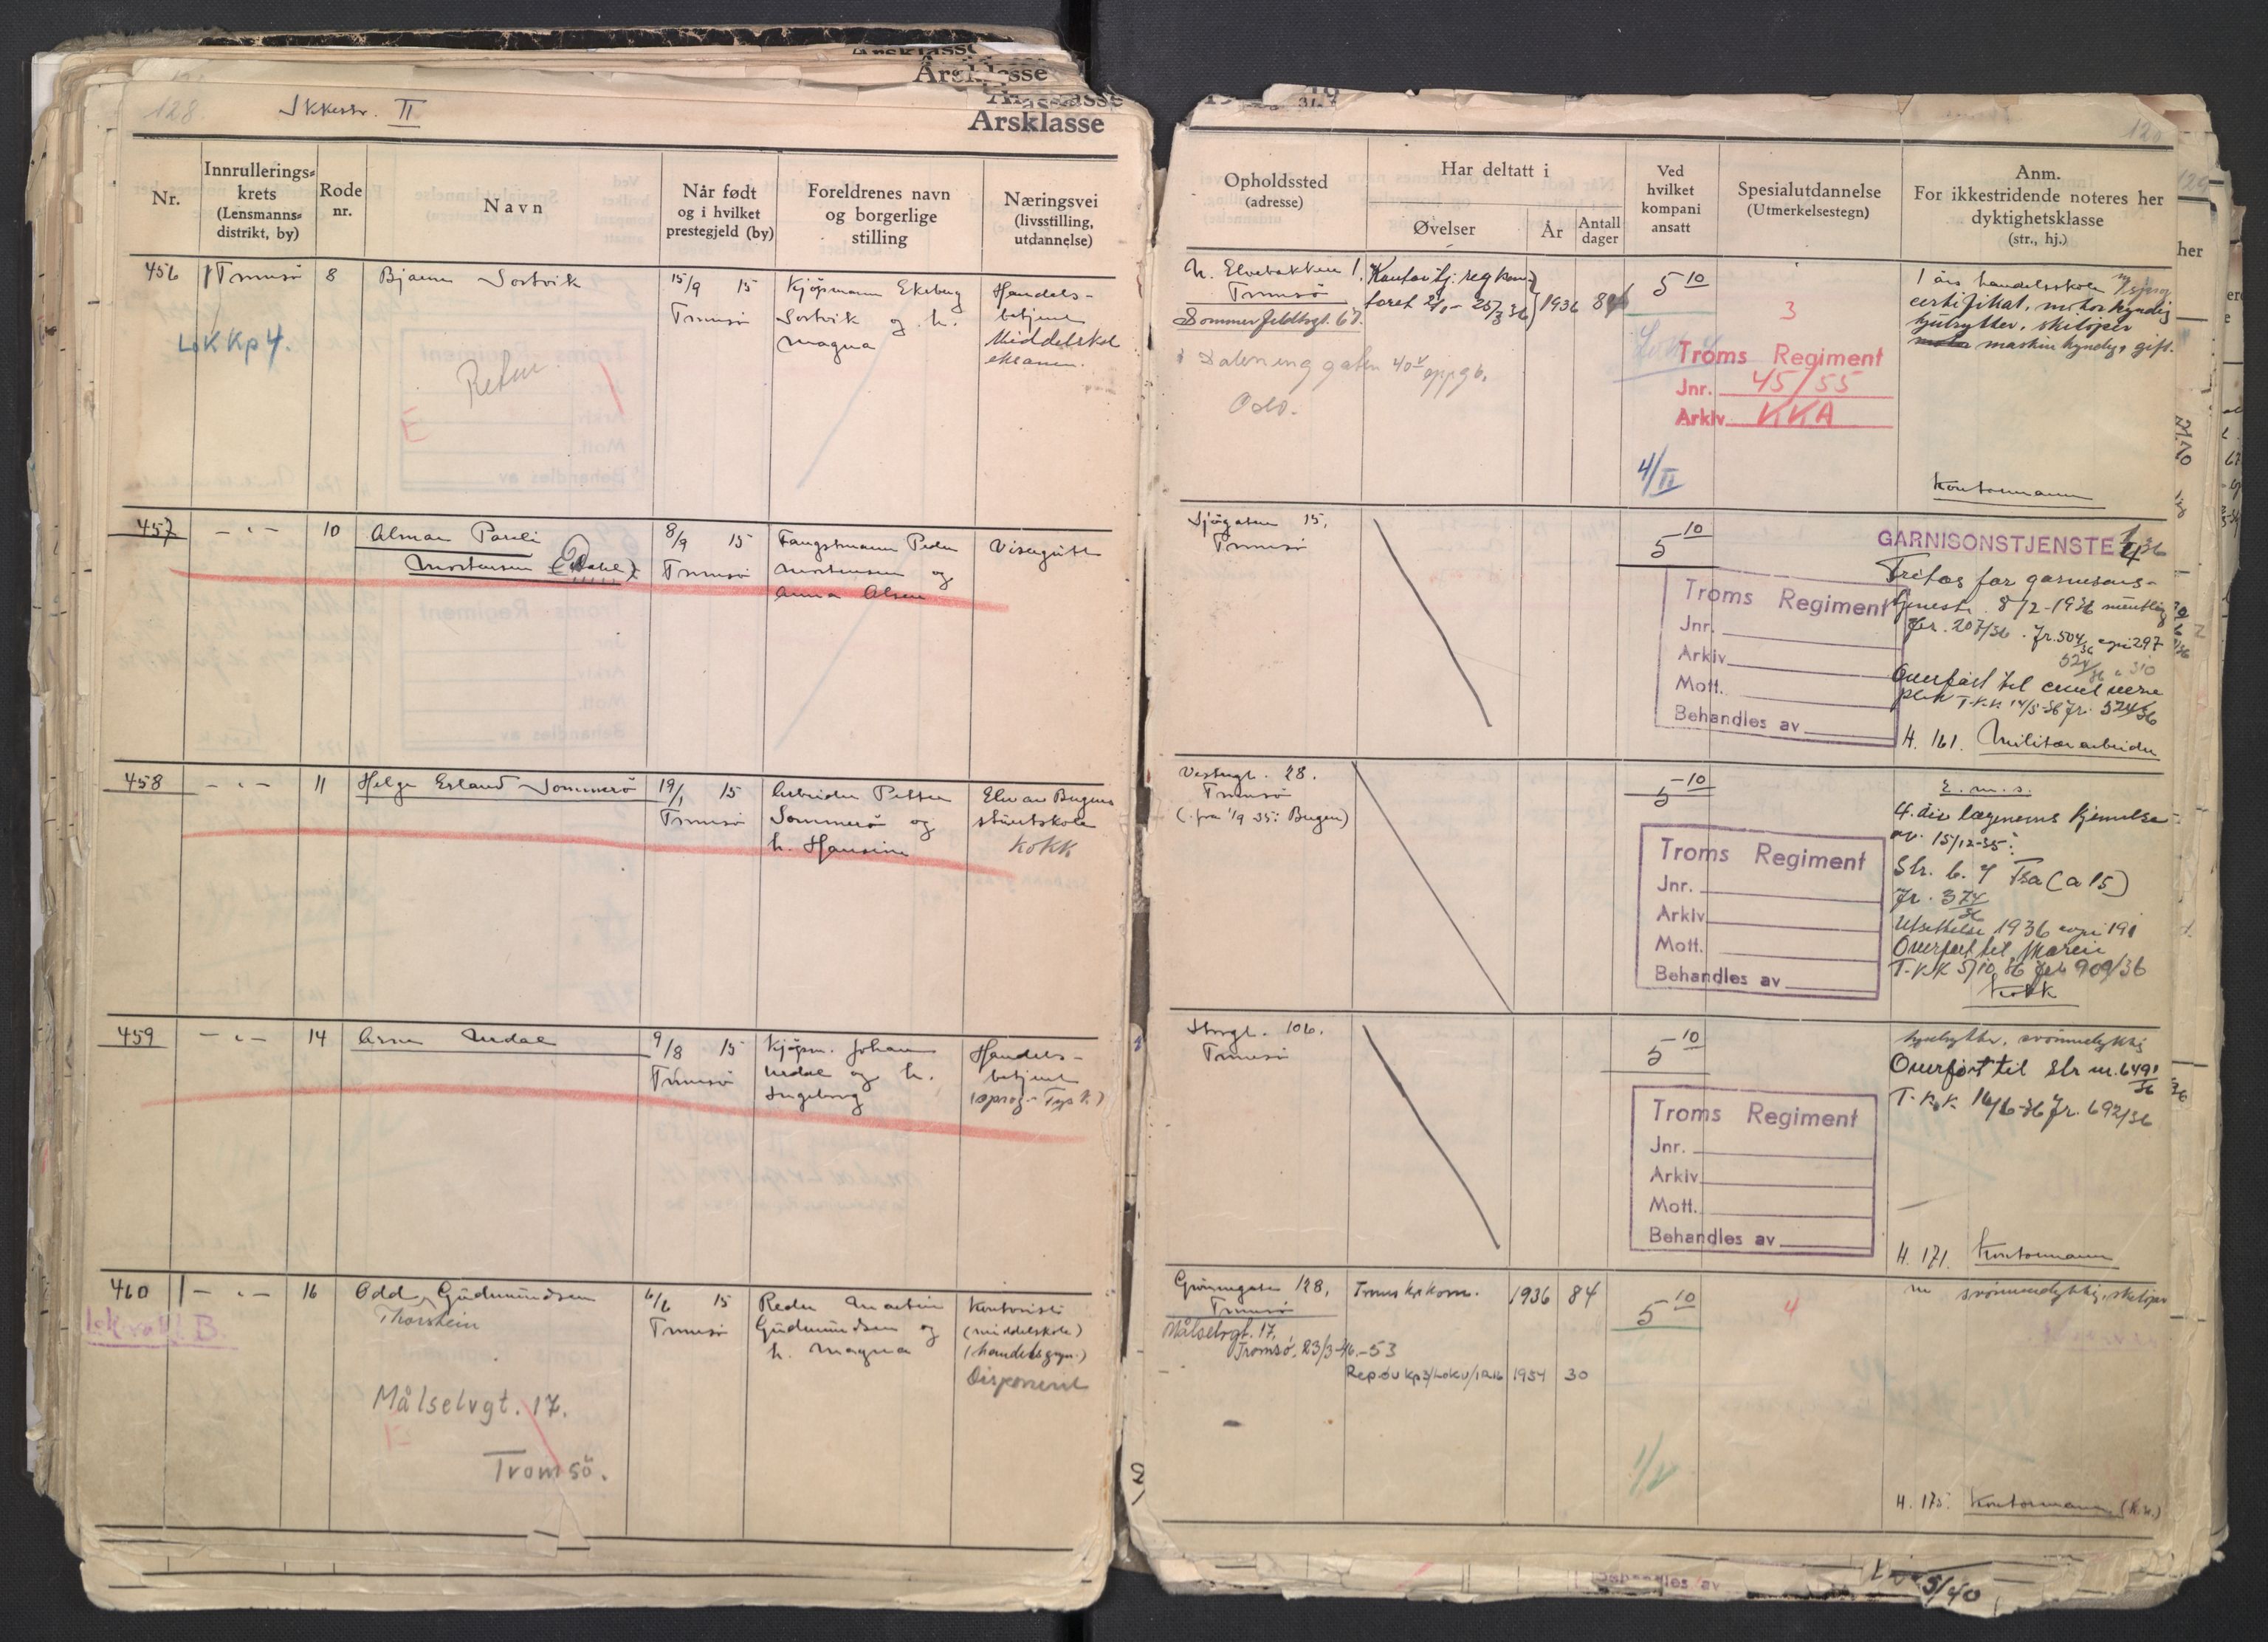 128.
Ikkestr. II
Årsklasse
Årsklasse
Nr.
Innrullerings-
krets
(Lensmanns-
distrikt, by)
Rode
nr.
Navn
Når født
og i hvilket
prestegjeld (by)
Foreldrenes navn
og borgerlige
stilling
Næringsvei
(livsstilling,
utdannelse)
456 Tromsø 8 Bjarne Sortvik 15/9 15
Tromsø
Kjøpmann Ekeberg
Sortvik og h.
Magna
Handels-
betjent
Middelskol
eksamen.
LokKp4.
E
457 - " - 10 Alman Pareli
Mortensen (Dahl)
8/9 15
Tromsø
Fangstmann Peder
Mortensen og
Anna Olsen
Visergutt
458 - " - 11 Helge Erland Sommerø 19/1 15
Tromsø
Arbeider Petter
Sommerø og
h. Hansine
Elev av Bugens
stuertskole
Kokk
459 - " - 14 Arne Urdal 9/8 15
Tromsø
Kjøpm. Johan
Urdal og h.
Ingeborg
Handels-
betjent
460 - " - 16 Odd Gudmundsen
Thorstein
6/6 15
Tromsø
Reder Martin
Gudmundsen og
h. Magna
Kontorist
(middelskole)
(handelsgym.)
Disponent
Målselvgt. 17.
E
Tromsö.
120
Opholdssted
(adresse)
Har deltatt i
Øvelser
År
Antall
dager
Ved
hvilket
kompani
ansatt
Spesialutdannelse
(Utmerkelsestegn)
Anm.
For ikkestridende noteres her
dyktighetsklasse
(str., hj.)
N. Elvebakken 1.
Tromsø
Sommerfeldtsgt. 67.
Oslo.
1936 84
5 10
3
Troms Regiment
Jnr. 45/55
Arkiv KKA
4/II
1 års handelsskole
certifikat, motorkyndig
hjulrytter, skiløper
maskinkyndig, gift.
Kontormann
Sjøgaten 15,
Tromsø
5 10
GARNISONSTJENESTE 36
Troms Regiment
Jnr.
Arkiv
Mott.
Behandles av
Fritas for garnisons-
tjeneste 8/2-1936 muntlig
Jr. 207/36. Jr. 504/36 297
524/36 " 310
Overført til civil verne
plikt T.K.K. 14/5-36 Jr. 524/36
H. 161. Militærarbeider
Vestregt. 28.
Tromsø
(. fra 1/9 35: Bugen)
5 10
Troms Regiment
Jnr.
Arkiv
Mott.
Behandles av
E.m.s.
4. div lægenems kjennelse
av 15/12-35:
Str. b. 7 Tsa (a 15)
Jr. 374/36
Utsettelse 1936 191
Overført til Marin
T.K.K 5/10 36 909/36
Kokk
Storgt. 106.
Tromsø
5 10
Troms Regiment
Jnr.
Arkiv
Mott.
Behandles av
hjulrytter, svømmedyktig
Overført til Str nr. 6491/36
T.K.K. 16/6-36 Jr. 692/36
H. 171. Kontormann
Grønnegaten 128,
Tromsø
Troms kp kom. 1936 84
5 10
4
svømmedyktig, skiløper
Målselvgt. 17,
Tromsø, 23/3-46.-53
Repøv kp3/ 1954 30
H. 175. Kontormann
Behandles av
5/40